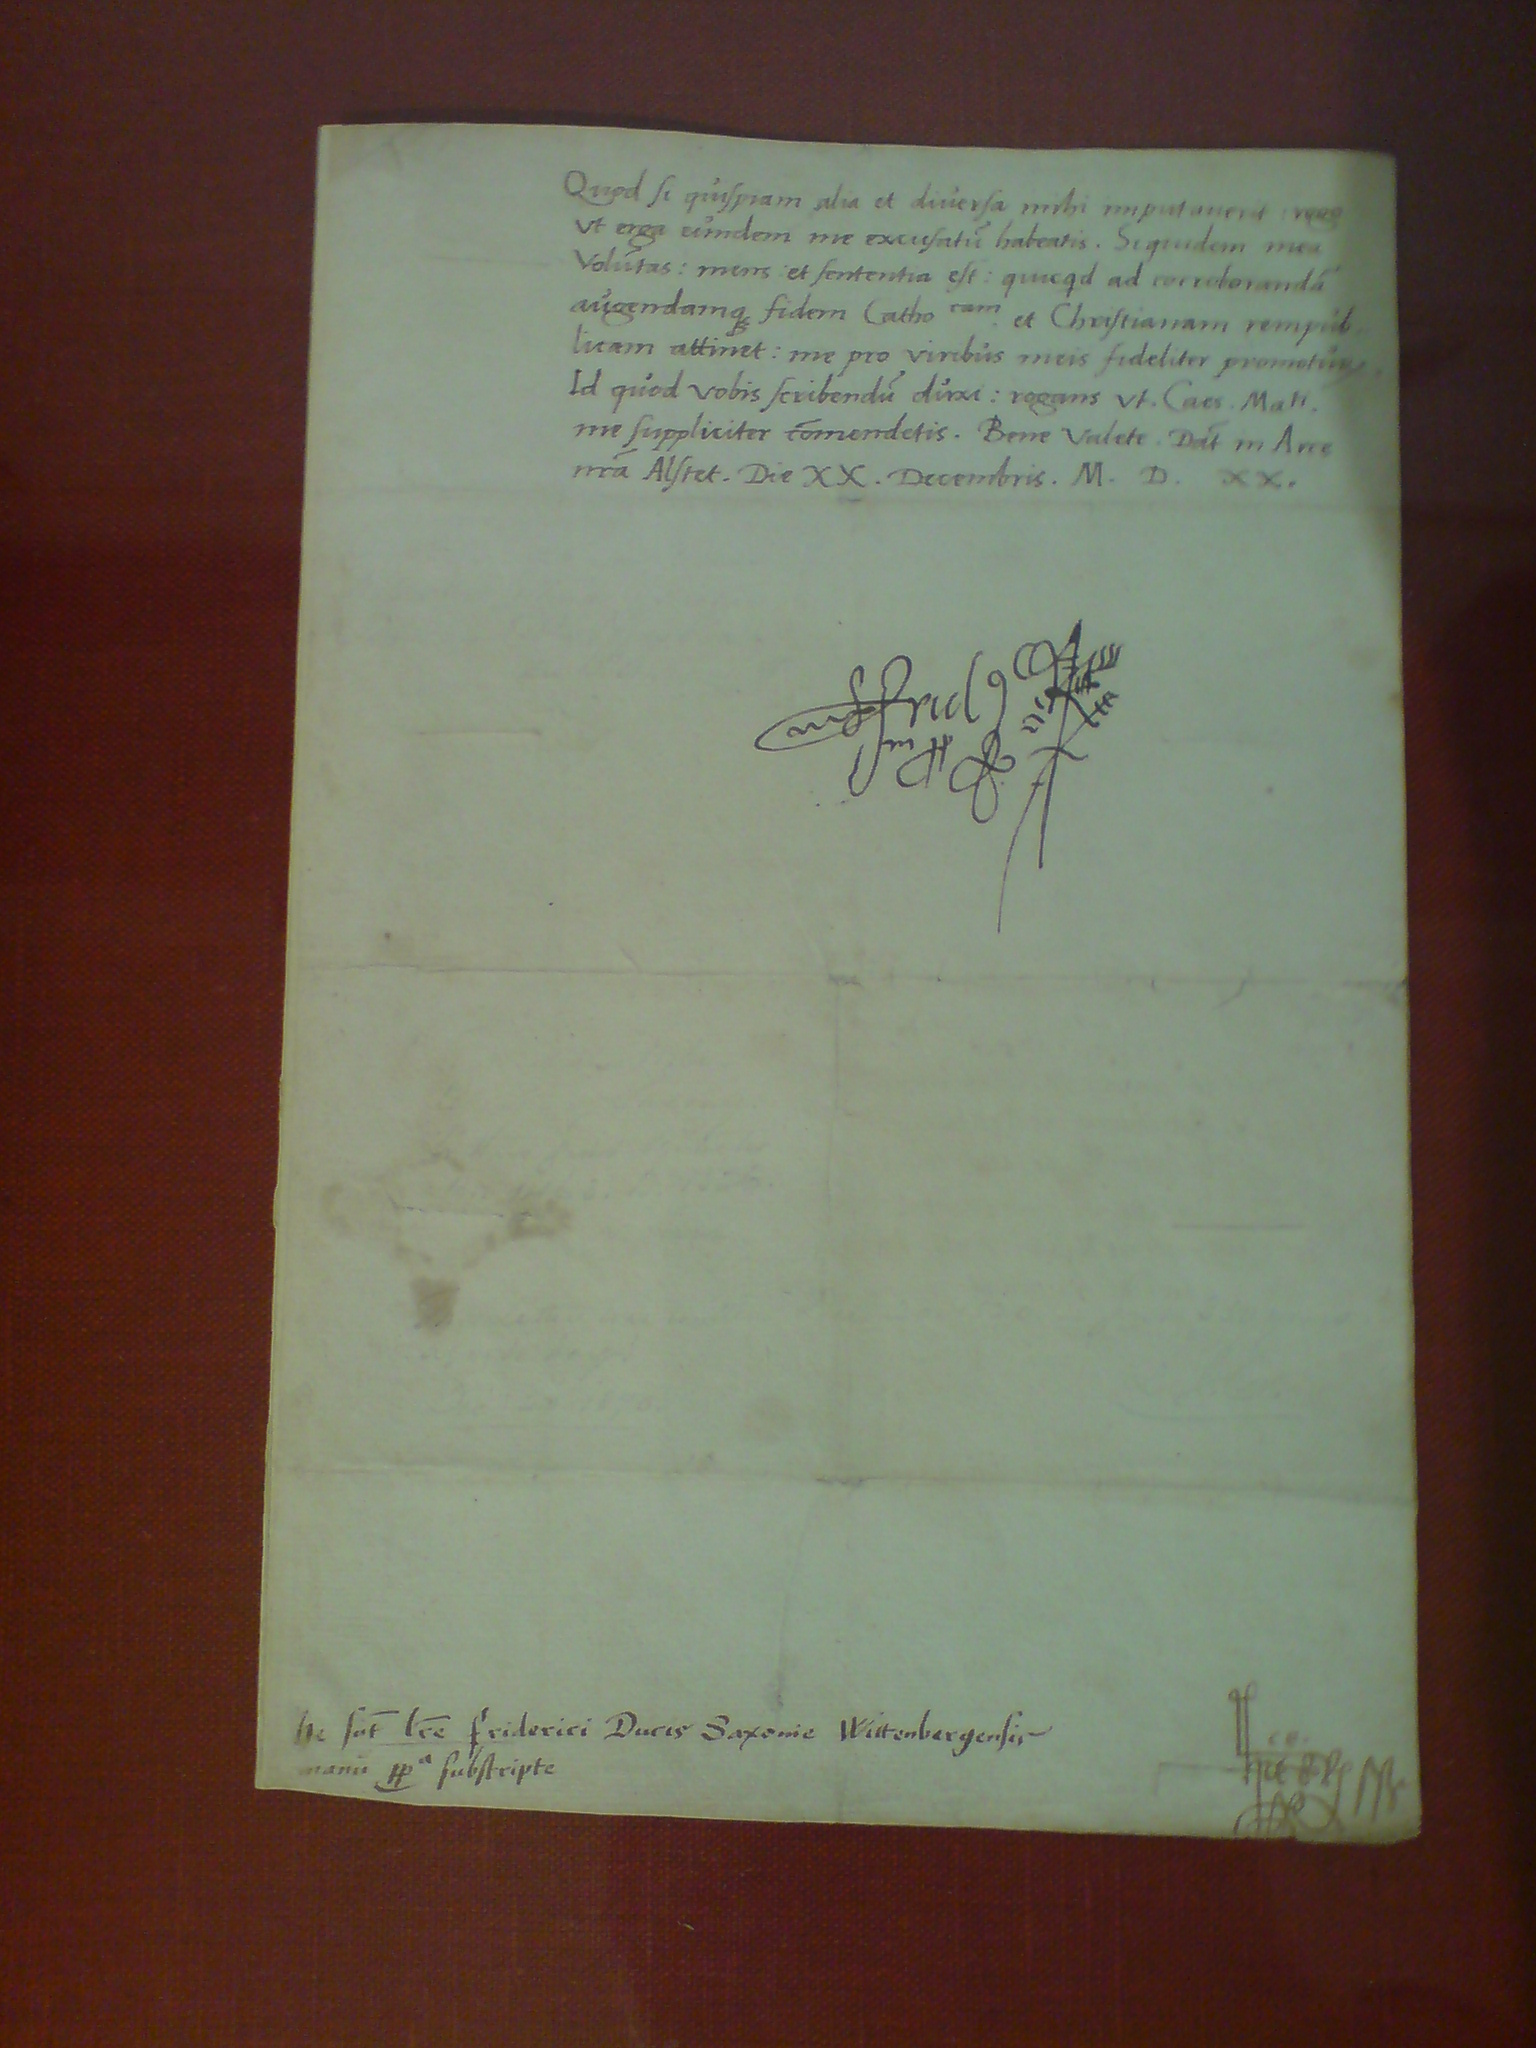 Quod si quispiam alia et diversa mihi imputaverit: rogo
Vt erga eundem me excusatū habeatis. Siquidem mea
Volūtas: mens et sententia est: quicqd ad corroborandā
augendamq fidem Catho cam et Christianam rempub
licam attinet: me pro viribus meis fideliter promoturū.
Id quod vobis scribendū duxi: rogans vt. Caes. Matᵗⁱ.
me suppliciter cōmendetis. Bene Valete. Dāt in Arce
nrā Alstet. Die XX. Decembris. M. D. XX.
Frid
he sūt lrē friderici Ducis Saxonie Wittenbergensis
manū ppᵃ substripte